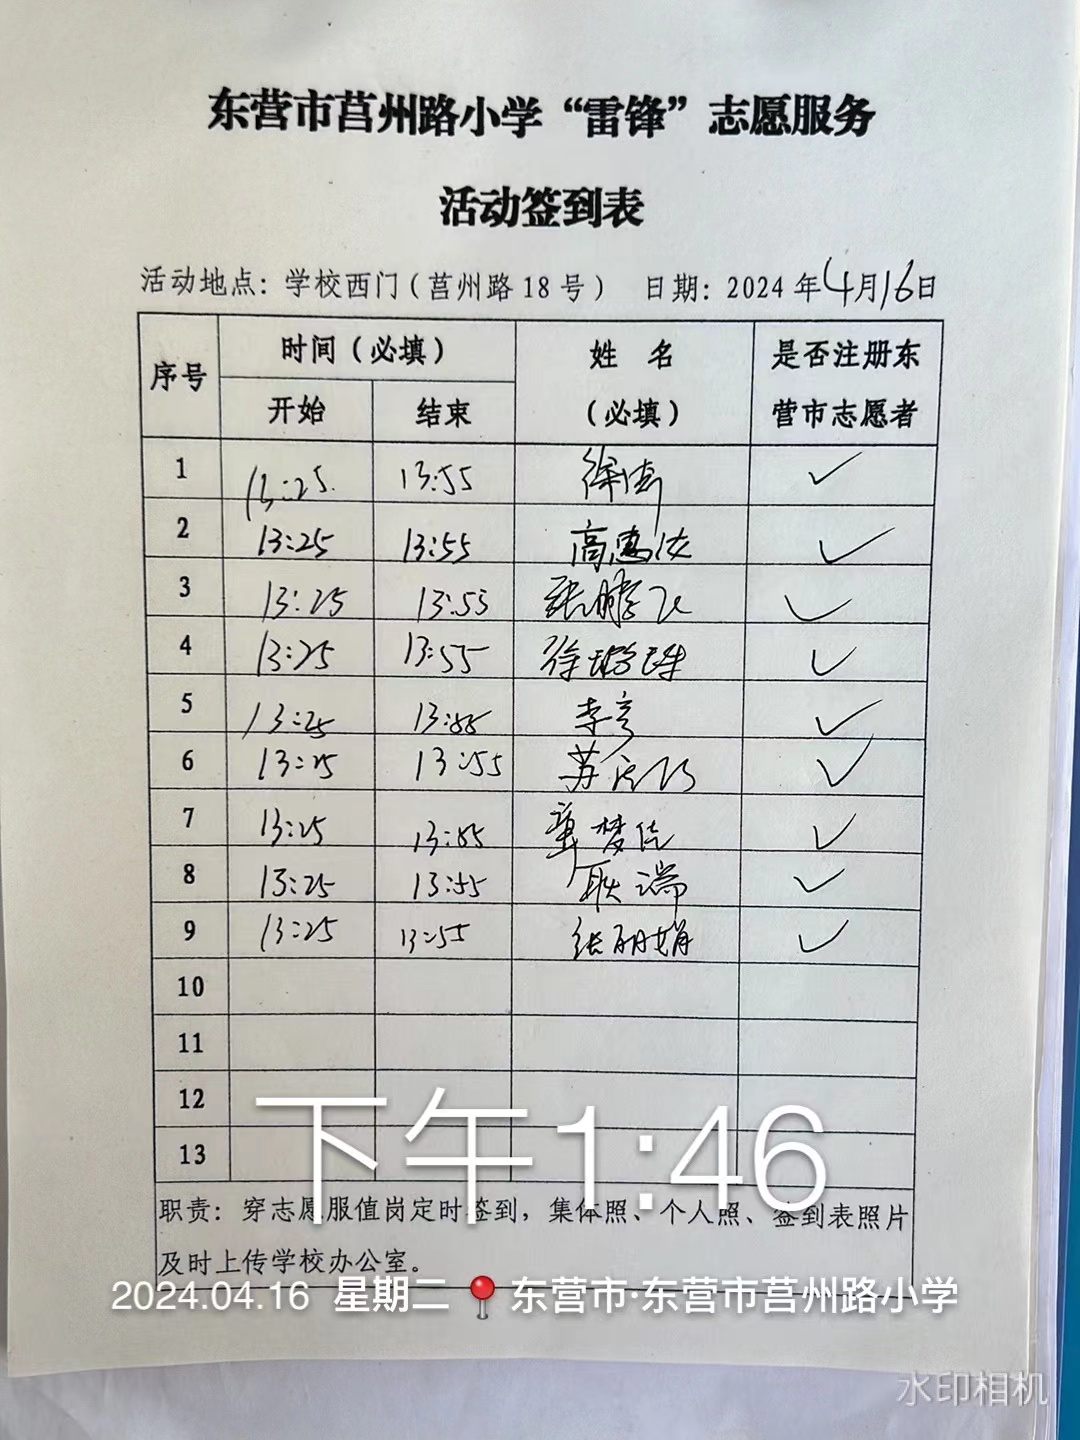 东营市莒州路小学“雷锋”志愿服务
活动签到表
活动地点：学校西门（莒州路18号） 日期：2024年4月16日
序号 时间（必填） 姓 名 是否注册东
开始 结束 （必填） 营市志愿者
1 13:25 13:55 徐倩 ✓
2 13:25 13:55 高惠 ✓
3 13:25 13:55 张鹏飞 ✓
4 13:25 13:55 徐 ✓
5 13:25 13:55 李亨 ✓
6 13:25 13:55 苏 ✓
7 13:25 13:55 梦佳 ✓
8 13:25 13:55 耿端 ✓
9 13:25 13:55 张丽娟 ✓
10
11
12
13
下午1:46
职责：穿志愿服值岗定时签到，集体照、个人照、签到表照片
及时上传学校办公室。
2024.04.16 星期二 东营市·东营市莒州路小学
水印相机